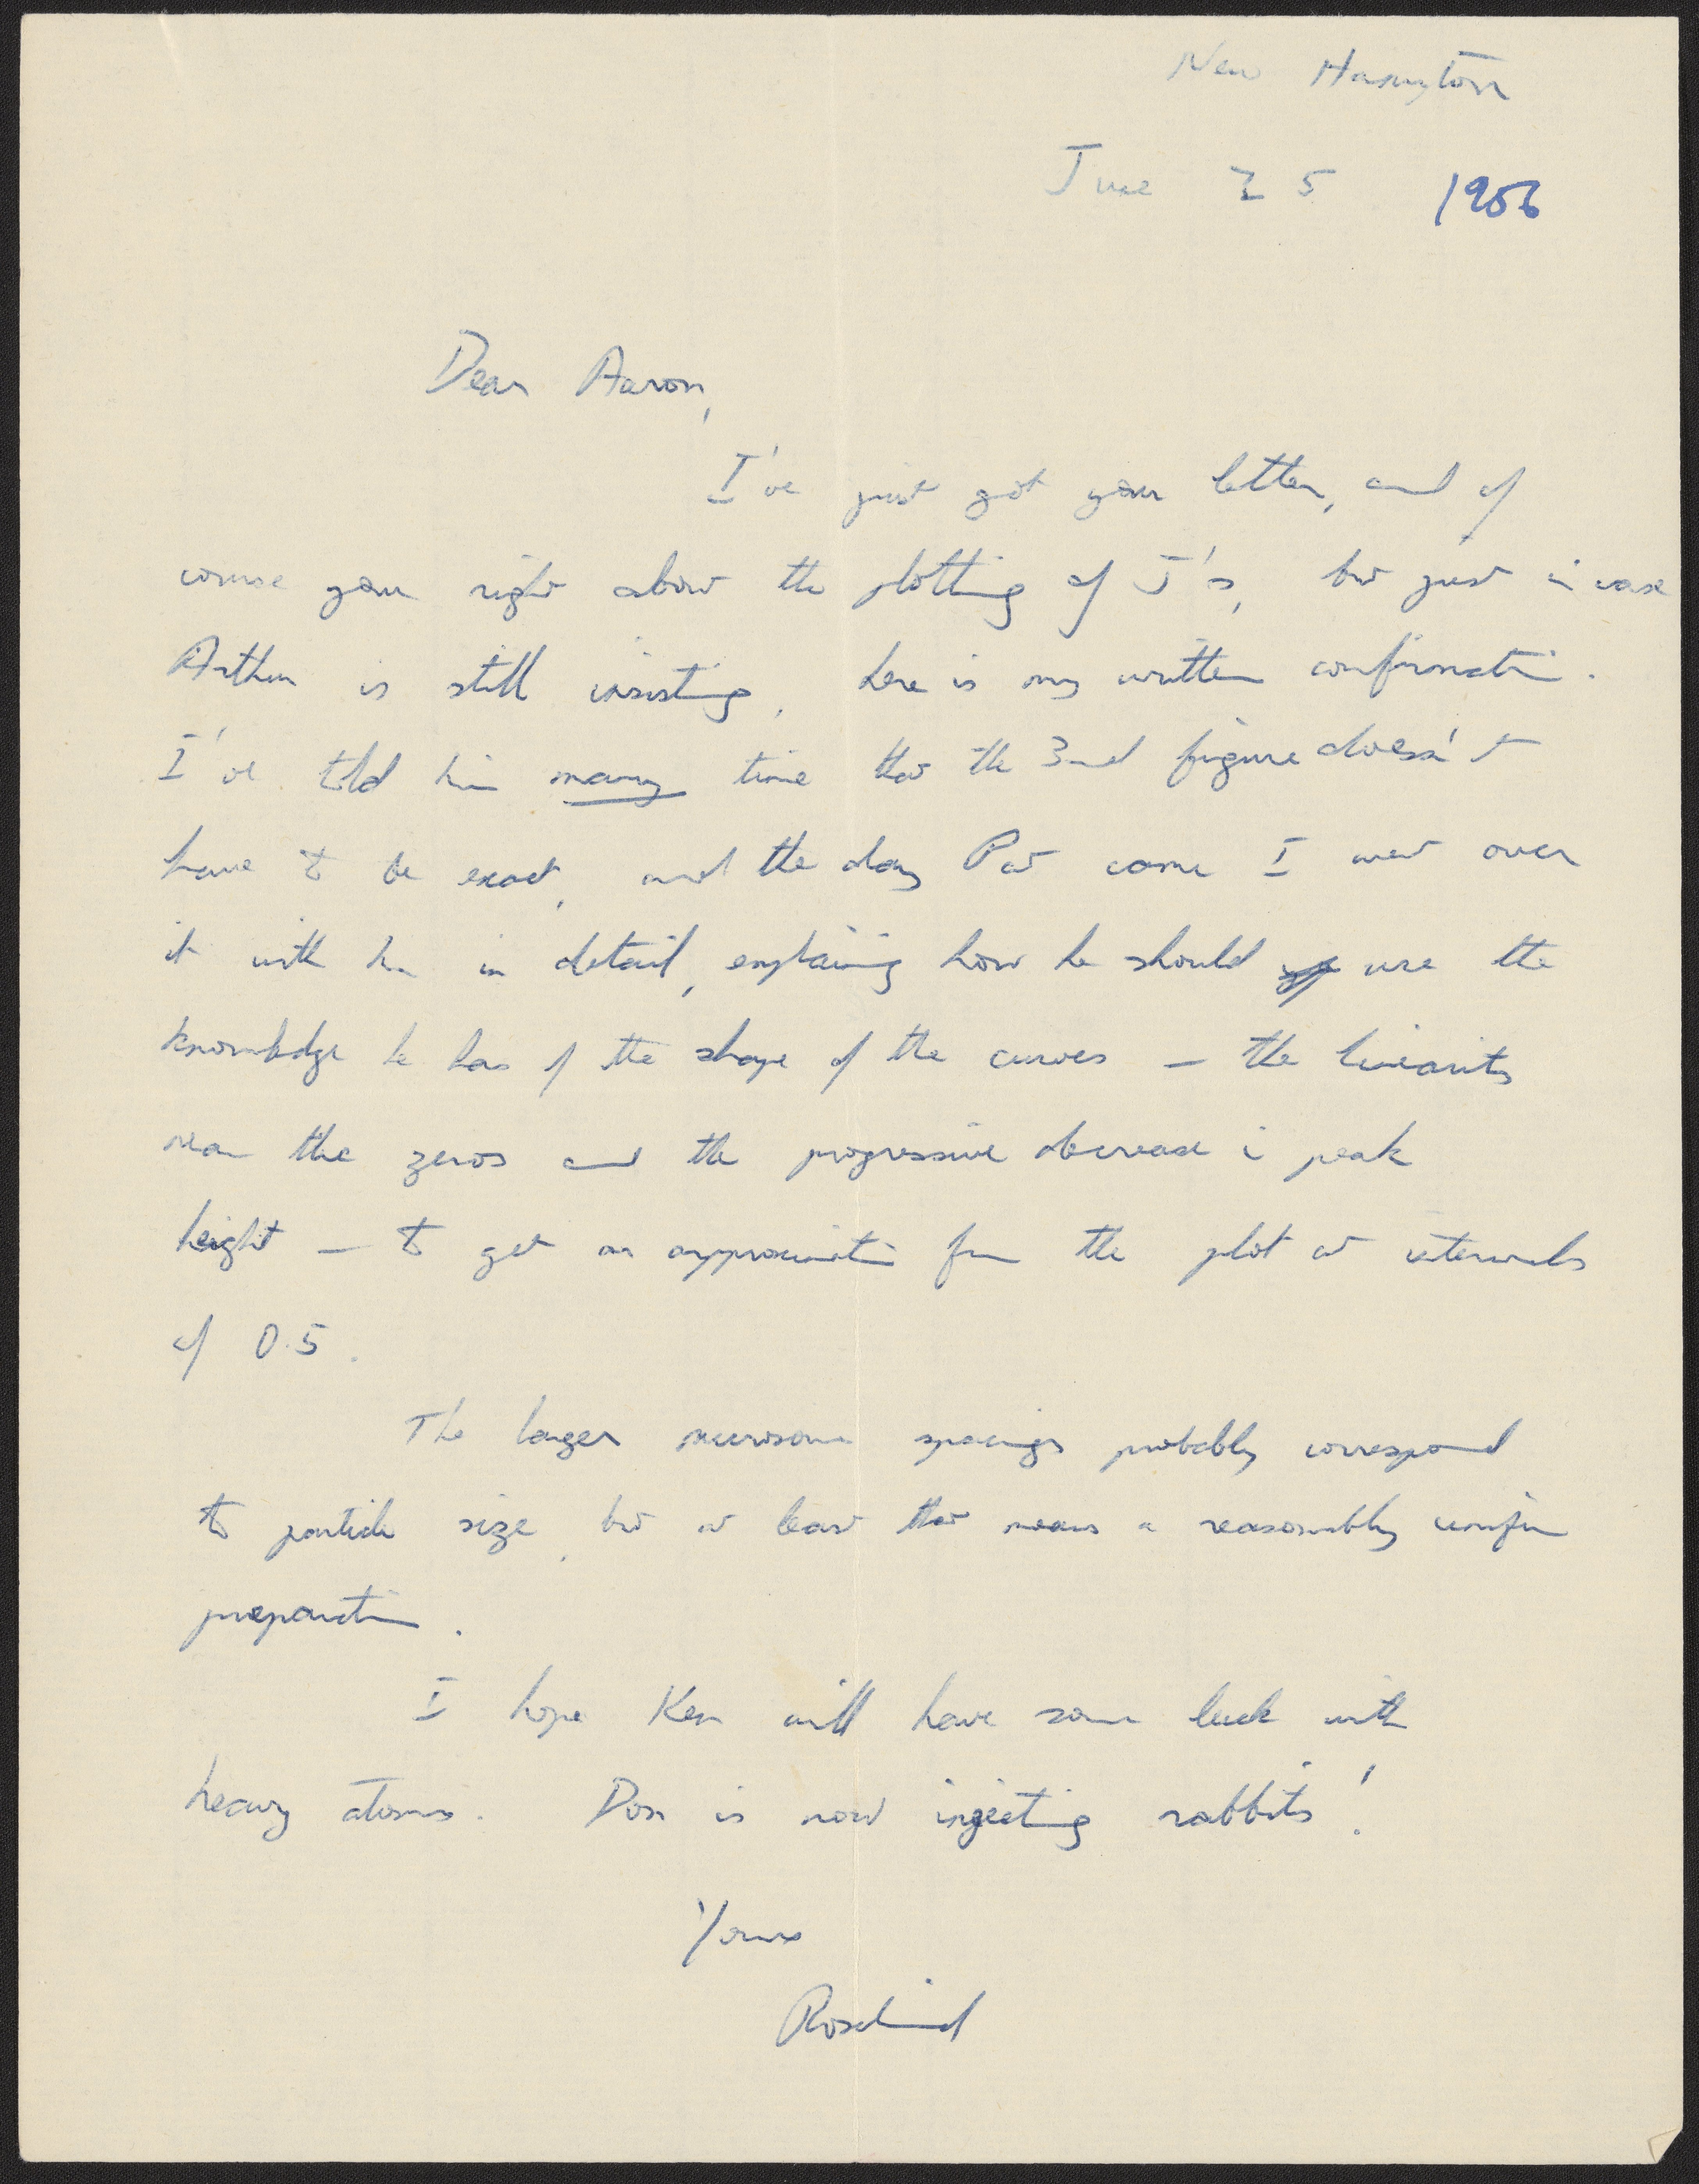 New Hampton
June 25 1956
Dear Aaron,
I've just got your letter, and of
course your right about the plotting of J's, but just in case
Arthur is still insisting, here is my written confirmation.
I've told him many time that the 3rd figure doesn't
have to be exact, and the day Pat came I went over
it with him in detail, explaining how he should use the
knowledge he has of the shape of the curves — the linearity
near the zeros and the progressive decrease in peak
height — to get an approximation from the plot at intervals
of 0.5.
The larger microsome spacings probably correspond
to particle size, but at least that means a reasonably uniform
preparation.
I hope Ken will have some luck with
heavy atoms. Don is now injecting rabbits!
Yours
Rosalind